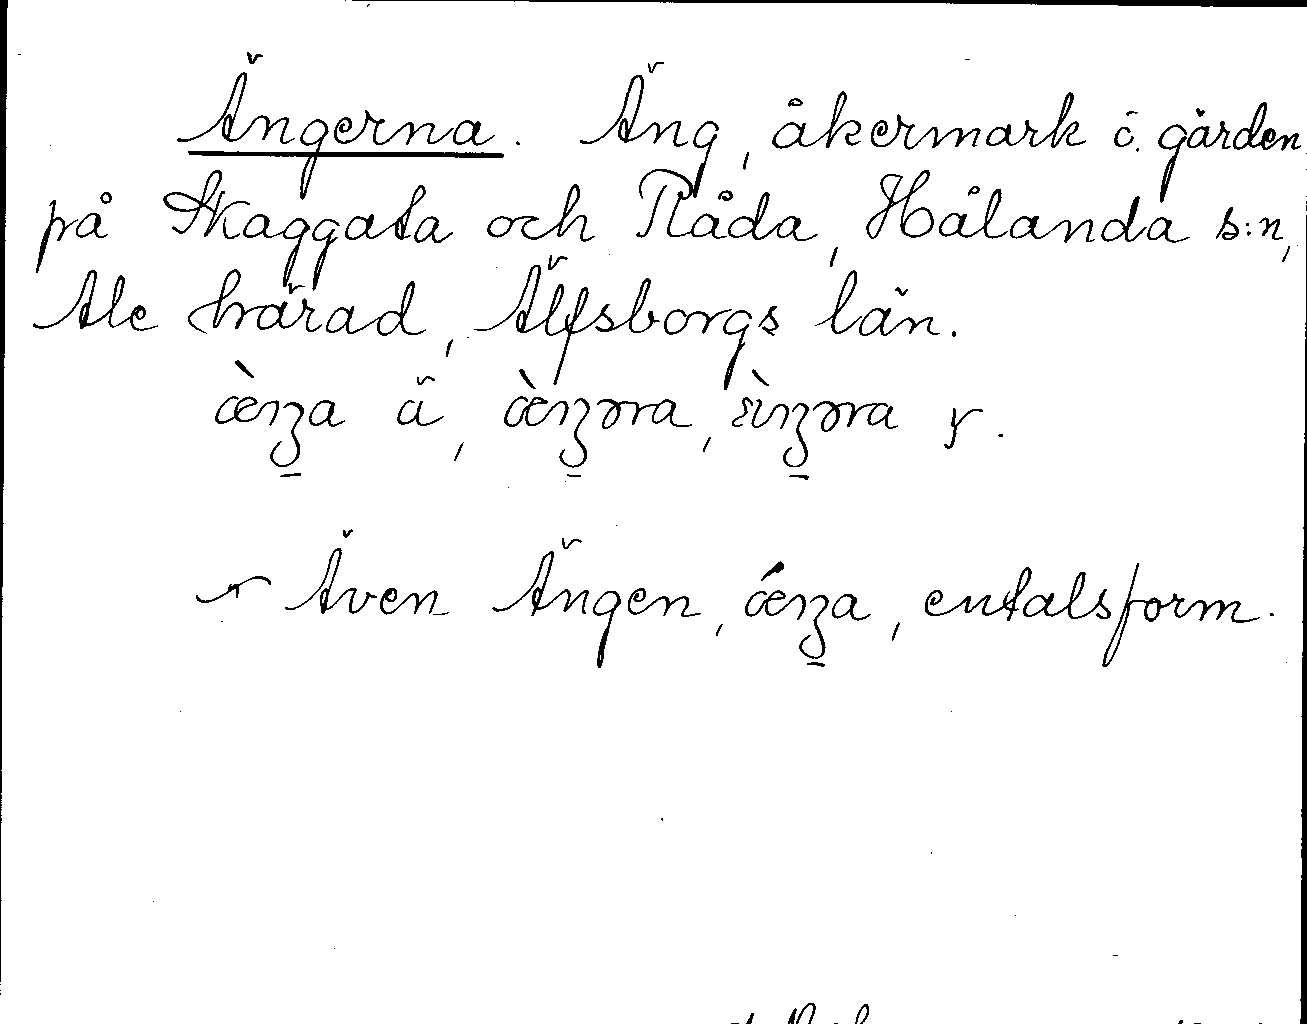 Ängerna. Äng, åkermark ö. gården
på Skaggata och Råda, Hålanda s:n,
Ale härad, Älfsborgs län.
æ̀ŋa ä, æ̀ŋəra, ɛ̀ŋəra y.
Även Ängen, ǽŋa, entalsform.